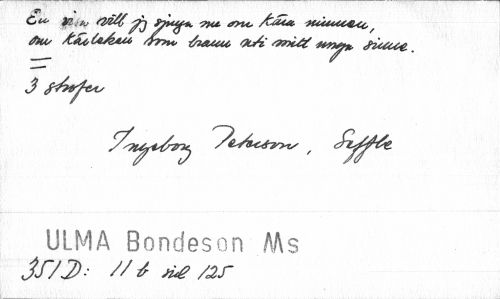 En visa vill jg sjunga me om kära minnen,
om kärleken som brann uti mitt unga sinne.
3 strofer
Ingeborg Peterson, Seffle
ULMA Bondeson Ms
351D: 11 b sid 125